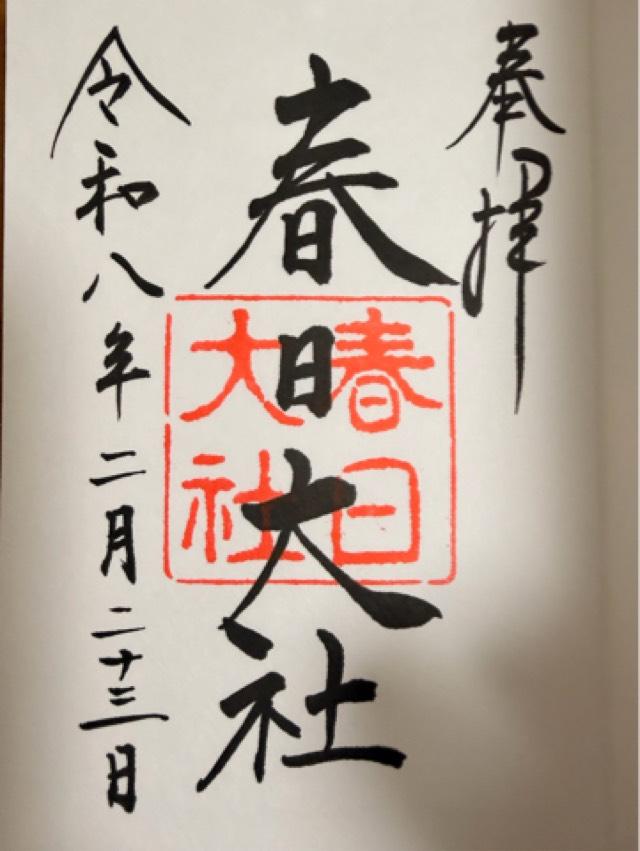 奉拝
春日大社
春日
大社
令和八年二月二十三日